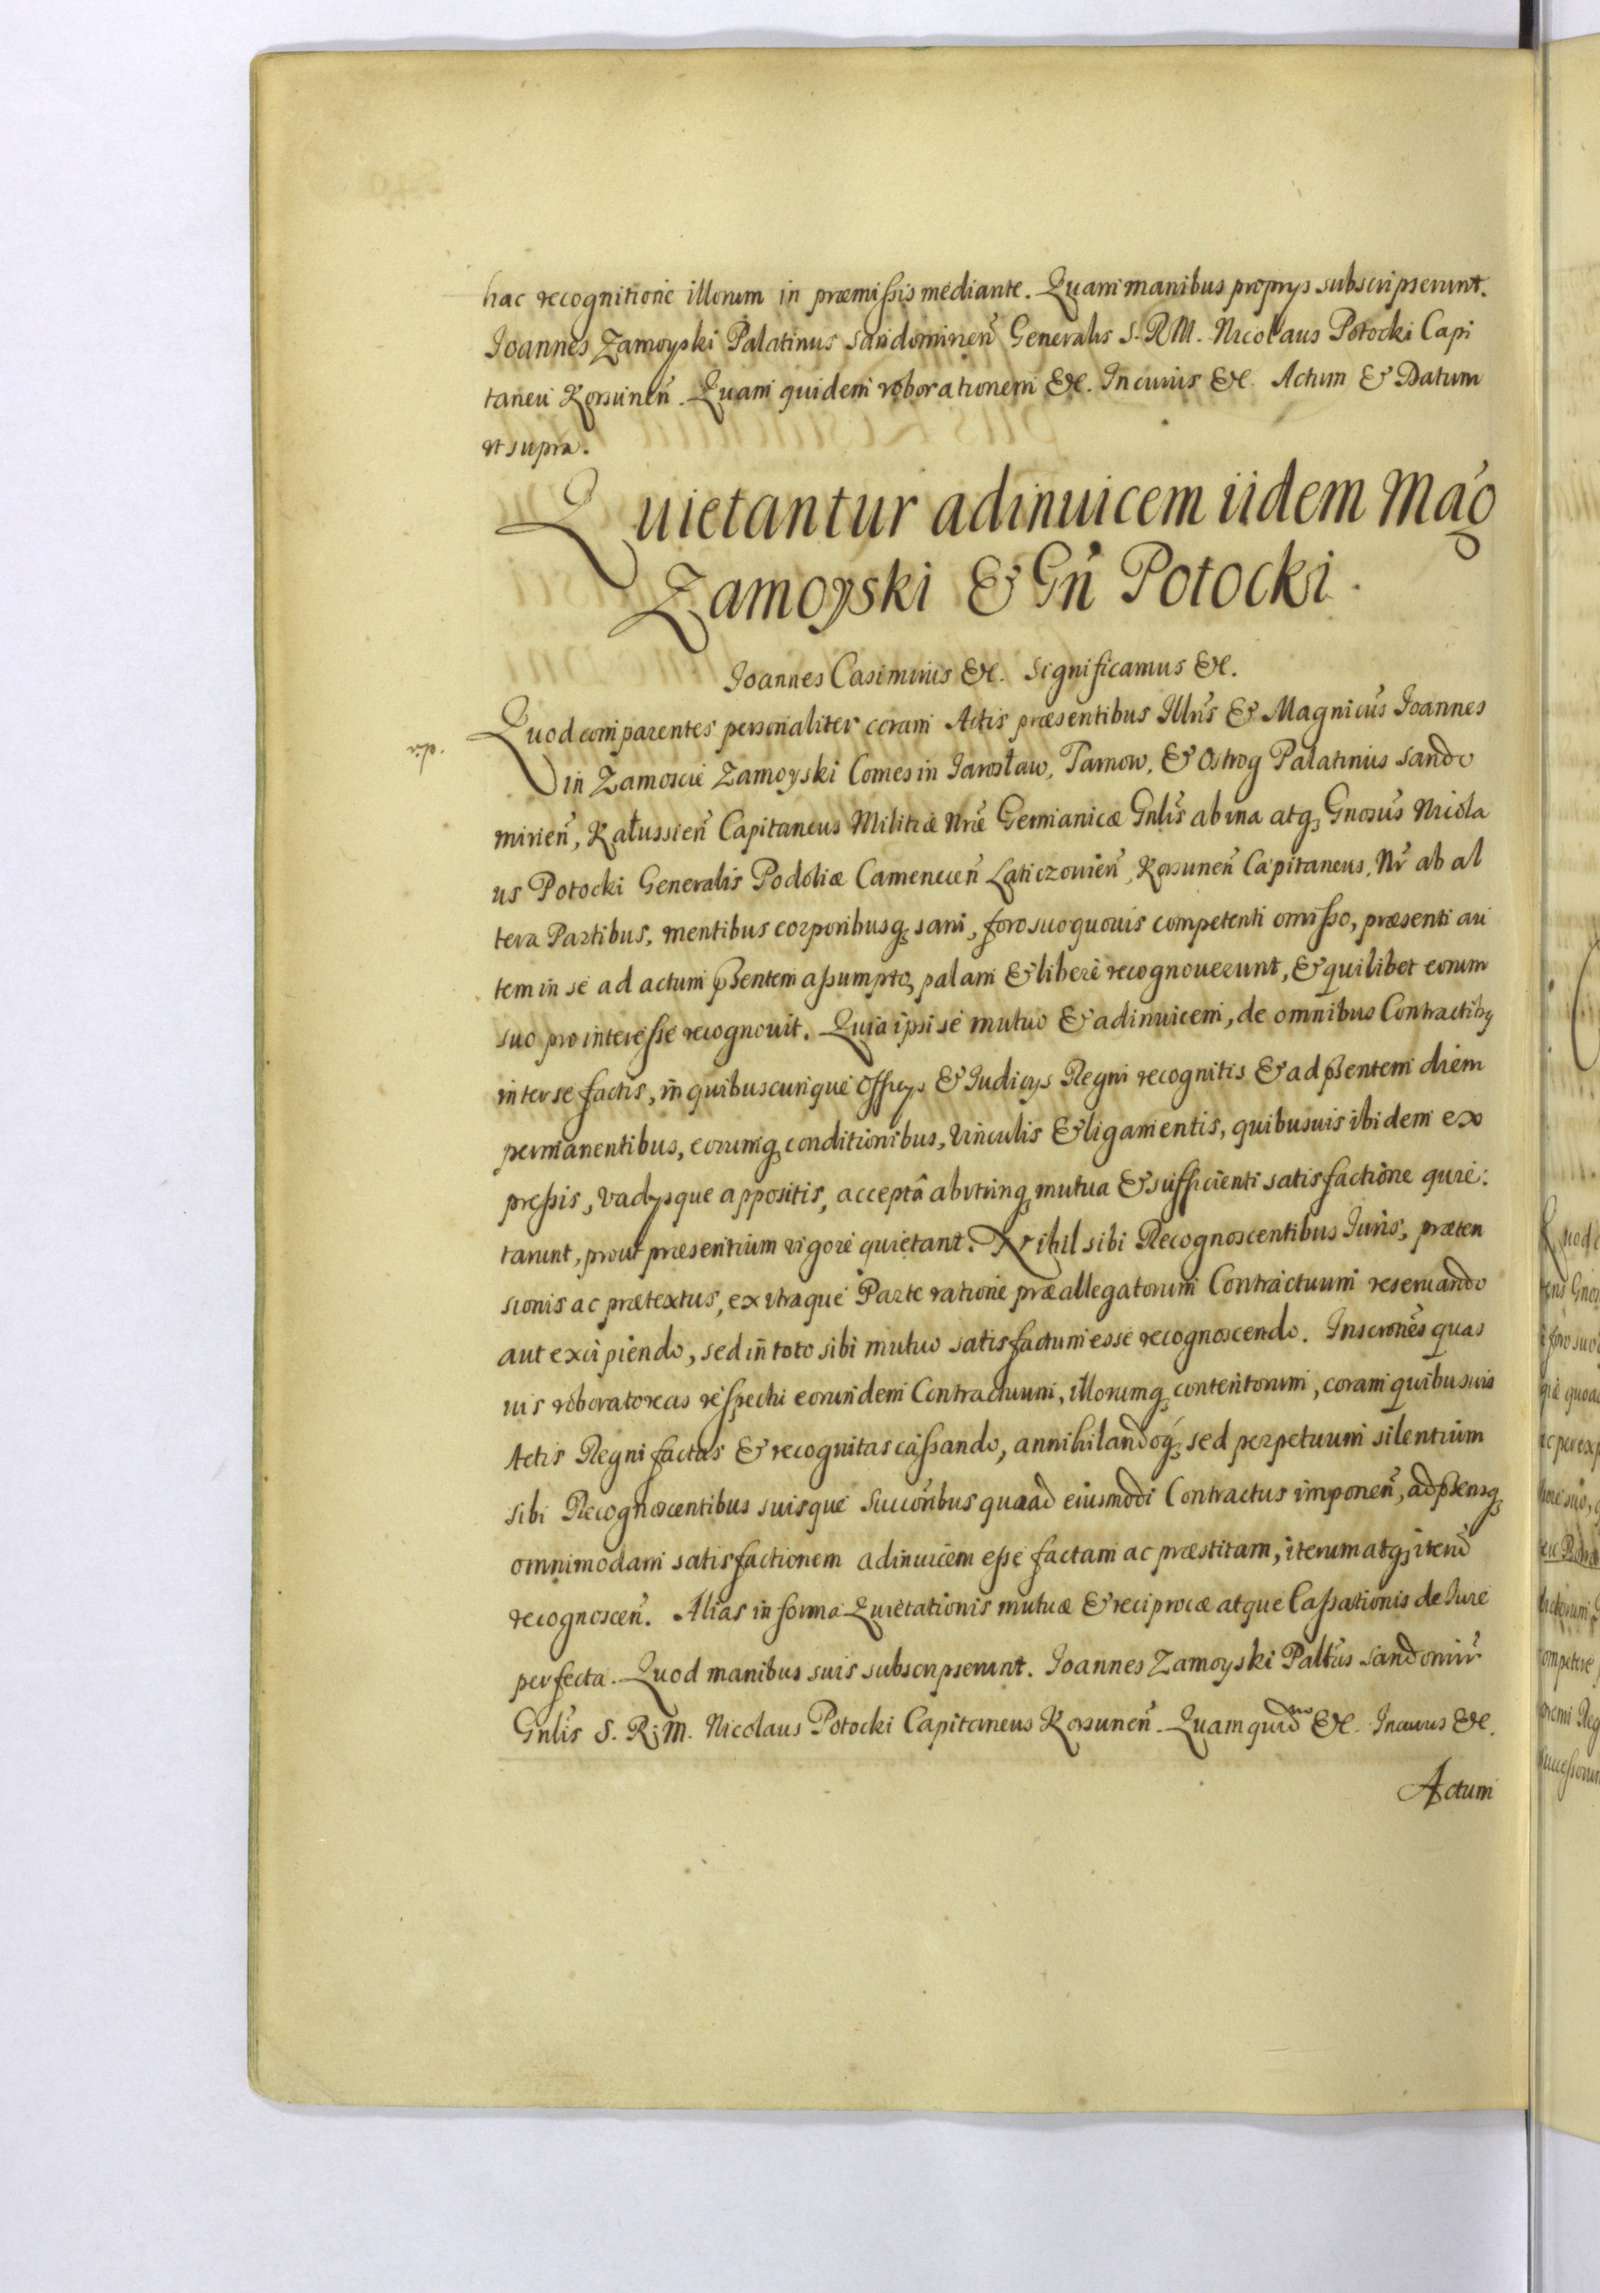 hac recognitione illorum in præmissis mediante. Quam manibus proprys subscripserunt.
Joannes Zamoyski Palatinus Sandomirien̄ Generalis S. R M. Nicolaus Potocki Capi
taneu Korsunen̄. Quam quidem roborationem &c. In cuius &c. Actum & Datum
ut supra.
Quietantur adinuicem iidem Mag͠
Zamoyski & Gn̄ Potocki.
Joannes Casimirus &c. Significamus &c.
Quod comparentes personaliter coram Actis præsentibus Illr̄is & Magnicūs Joannes
in Zamoscie Zamoyski Comes in Jarosław, Tarnow, & Ostrog Palatinus Sando
mirien̄, Kałussien̄ Capitaneus Militiæ Nr̄æ Germanicæ Gnl̄is ab una atq; Gnosūs Nicola
us Potocki Generalis Podoliæ Camenecen̄ Laticzouien̄, Korsunen̄ Capitaneus, Nr̄ ab al
tera Partibus, mentibus corporibusq; sani, foro suo quouis competenti omisso, præsenti au
tem in se ad actum p̄sentem assumpto, palam & liberè recognouerunt, & quilibet eorum
suo pro interesse recognouit. Quia ipsi se mutuo & adinuicem, de omnibus Contractib9
inter se factis, in quibuscunque Officys & Judicys Regni recognitis & ad p̄sentem diem
permanentibus, eorumq; conditionibus, Vinculis & ligamentis, quibusuis ibidem ex
pressis, vadysque appositis, acceptâ ab utrinq; mutua & sufficienti satisfactione quie:
tarunt, prout præsentium vigore quietant. Nihil sibi Recognoscentibus Juris, præten
sionis ac prætextus, ex utraque Parte ratione præallegatorum Contractuum reseruando
aut excipiendo, sed in toto sibi mutuo satisfactum esse recognoscendo. Inscrōnes quas
uis roboratoreas respectu eorundem Contractuum, illorumq; contentorum, coram quibusuis
Actis Regni factas & recognitas cassando, annihilandoq; sed perpetuum silentium
sibi Recognoscentibus suisque Succōribus quoad eiusmodi Contractus imponen̄, ad p̄sensq;
omnimodam satisfactionem adinuicem esse factam ac præstitam, iterum atq; iterū
recognoscen̄. Alias in forma Quietationis mutuæ & reciprocæ atque Cassationis de Jure
perfecta. Quod manibus suis subscripserunt. Joannes Zamoyski Palt̄us Sandomir̄
Gnl̄is S. R. M. Nicolaus Potocki Capitaneus Korsunen̄. Quam quid̄ &c. In cuius &c.
Actum